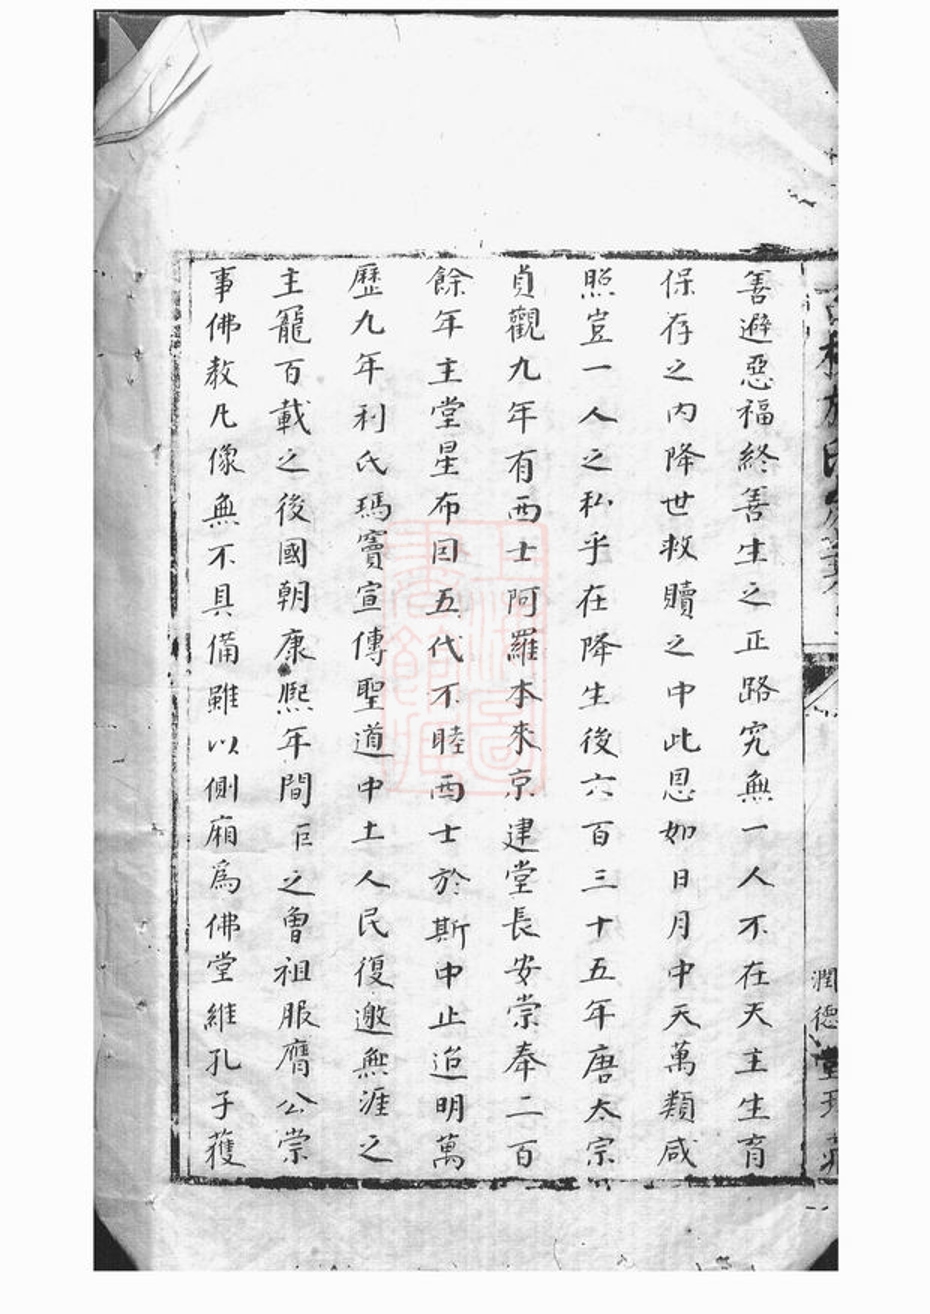 潤德堂
善避惡福終善生之正路究無一人不在天主生育
保存之内降世救贖之中此恩如日月中天萬類咸
照豈一人之私乎在降生後六百三十五年唐太宗
貞觀九年有西士阿羅本來京建堂長安崇奉二百
餘年主堂星布因五代不睦西士於斯中止迨明萬
歷九年利氏瑪竇宣傳聖道中土人民復邀無涯之
主寵百載之後國朝康熙年間臣之曽祖服膺公崇
事佛教凡像無不具備雖以側廂爲佛堂維孔子獲